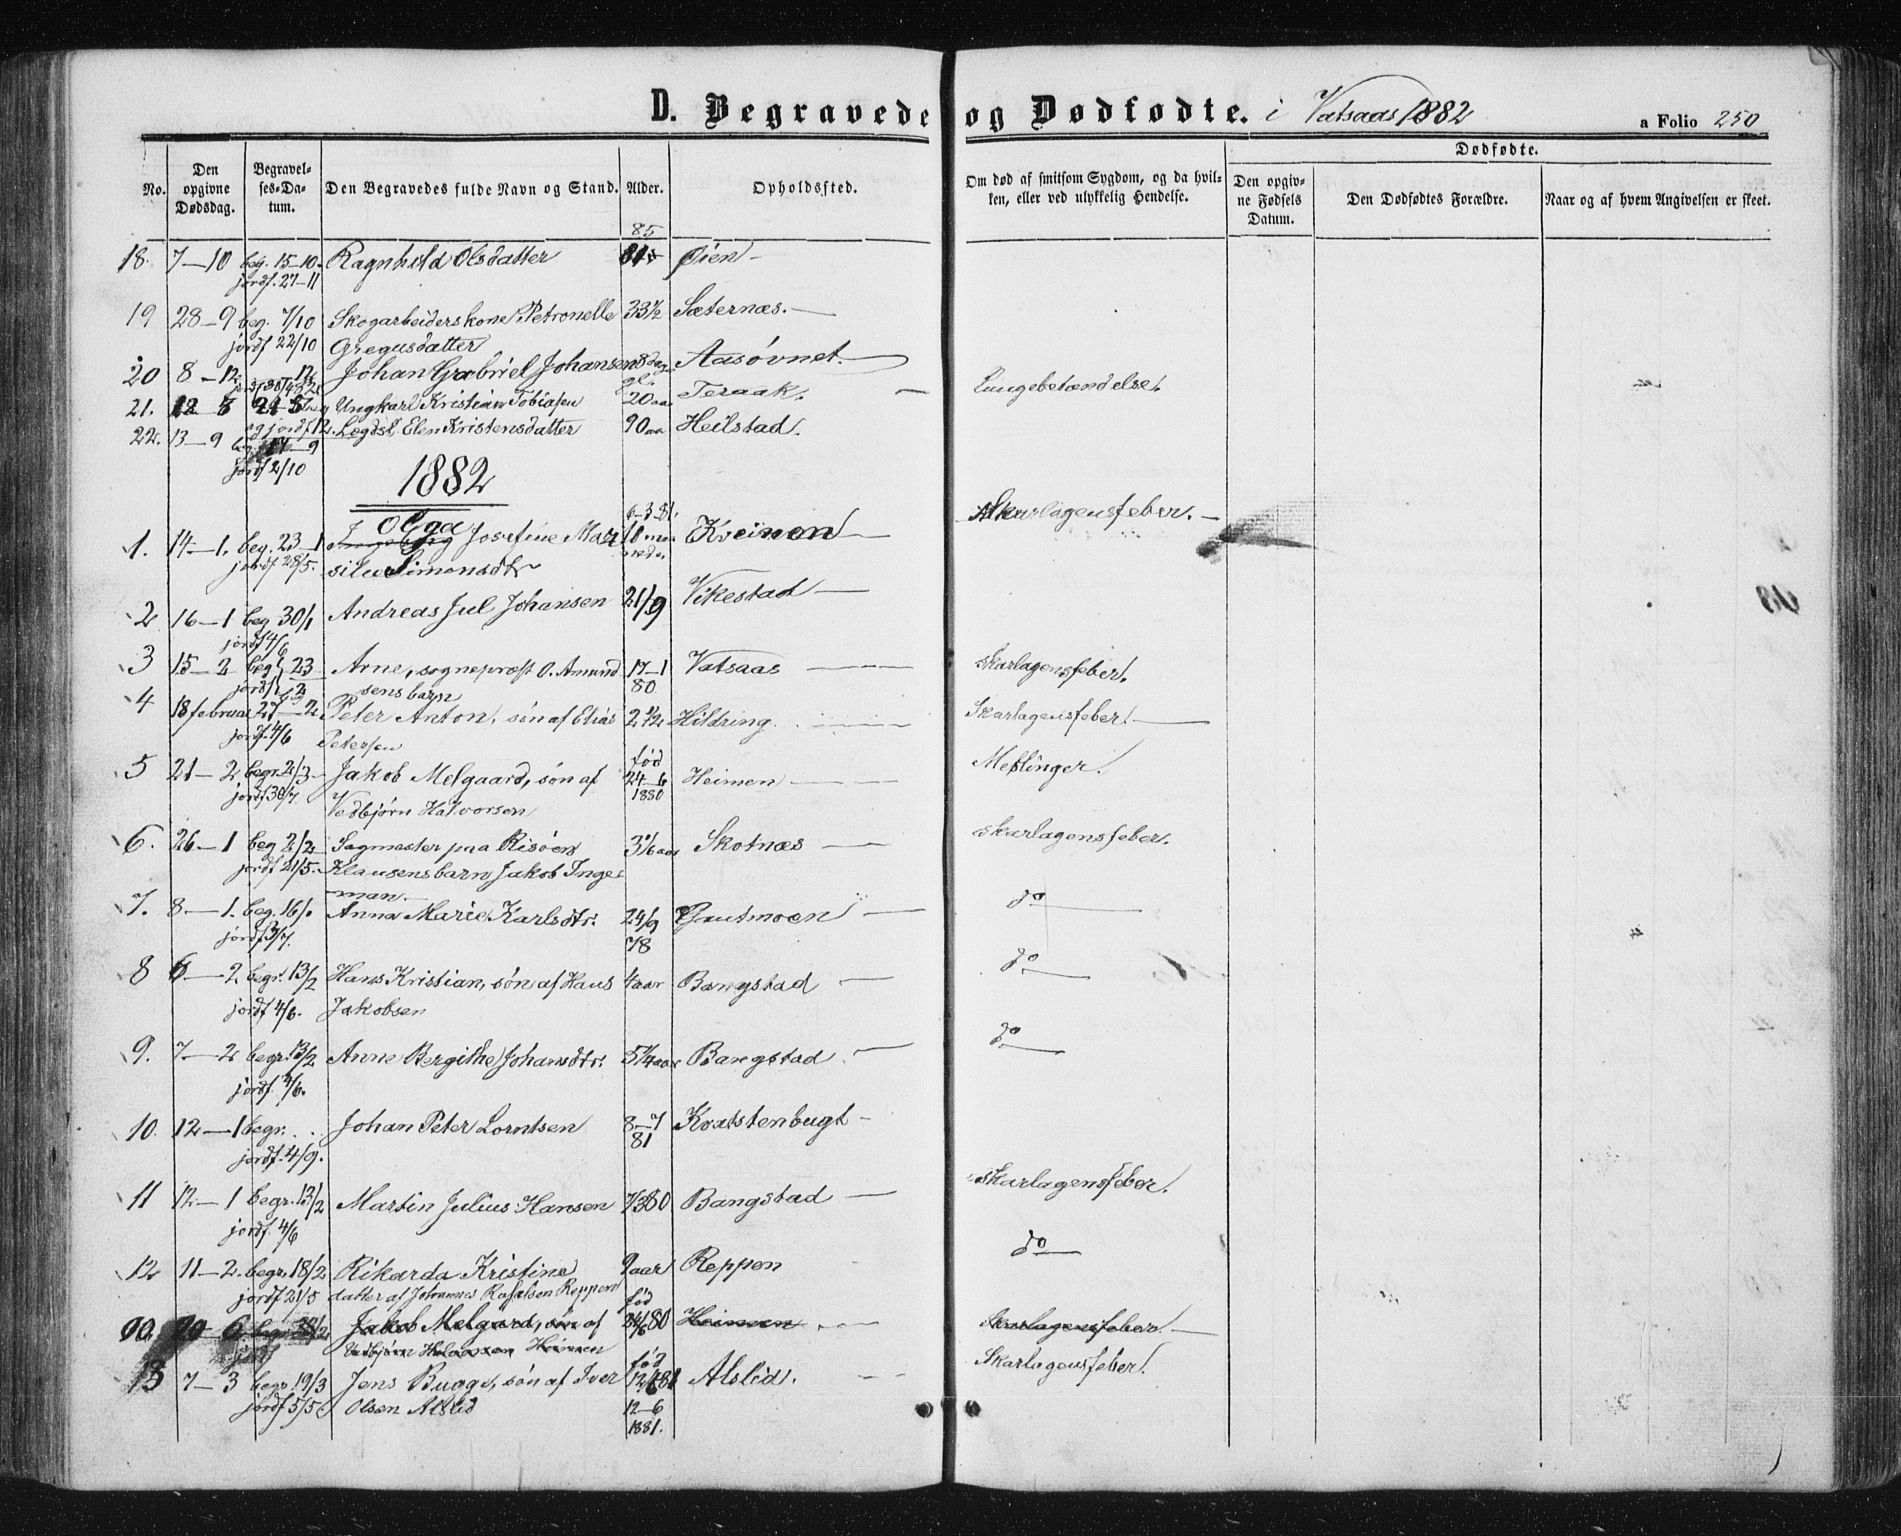 D. Begravede og Dødfødte. i Vatsaas 1882 a Folio 250
No.
Den opgivne Dødsdag.
Begravelses-Datum.
Den Begravedes fulde Navn og Stand.
Alder.
Opholdssted.
Om død af smitsom Sygdom, og da hvilken, eller ved ulykkelig Hendelse.
Dødfødte.
Den opgivne Fødsels Datum.
Den Dødfødtes Forældre.
Naar og af hvem Angivelsen er skeet.
85
18. 7—10 beg. 15—10. Ragnhild Olsdatter Øien —
jordf. 27—11
19 28—9 beg. 7/10 Skogarbeiderskone Petronelle 33½ Sæternæs. —
jordf 22/10 Gregusdatter
20 8—12 Johan Gabriel Johansen Aasøvnet. —
21. Ungkarl Kristian Tobiasen 20 aar Teraak. — Lungebetændelse.
22. 13—9 og jordf Lægdsl. Elen Kristensdatter 90 aar Heilstad.
jordf 2/10
1882
6—3—81.
Olga
1. 14—1. beg. 23—1 Ingeborg Josefine Mar 10 maa Kveinen — Skarlagensfeber. —
jordf 28/5. silie Simonsdtr neder
2 16—1 beg 30/1 Andreas Jul Johansen 21/9 Vikestad —
jordf 4/6
3 15—2 beg 23 Arne, sogneprest O. Amund 17—1 Vatsaas — Skarlagensfeber.
jordf sens barn 80
4 18 februar 27—2. Peter Anton, søn af Elias 2½ Hildring. — Skarlagensfeber. —
jordf. 4/6 Petersen
fød
5 21—2 begr. 2/3 — Jakob Melgaard, søn af 24—6 Heimen — Meslinger.
jordf 30/7. Vedbjørn Halvorsen 1880
6. 26—1 beg 2/2 Sagmester paa Risøen 3 1/6 aar Skotnæs — Skarlagensfeber.
jordf 21/5. Klausens barn Jakob Inge=
man —
7. 8—1. beg. 16/. Anna Marie Karlsdtr. 24/9 Gautmoen — do —
jordf 3/7. 78
8 6—2 begr. 13/2 Hans Kristian, søn af Hans 4 aar Bangstad — do —
jordf 4/6. Jakobsen
9. 7—2 begr. 13/2 Anne Bergithe Johansdtr. 5¼ aar Bangstad — do —
jordf. 4/6.
10. 12—1 begr. . . Johan Peter Lorntsen 8—7 Kvatstenbugt —
jordf. 4/9. 81
11 12—1 begr. 13/2 Martin Julius Hansen 7/3 80 Bangstad — Skarlagensfeber.
jordf. 4/6
12 11—2. begr. 18/2 Rikarda Kristine 9 aar Reppen do —
jordf 21/5 datter af Johannes Rafalsen Reppen
fød
Jakob Melgard, søn af 24/6 80 Heimen — Skarlagensfeber. —
jordf Vedbjørn Heimen
fød
13 7—3 begr. 19/3 Jens Bugge, søn af Iver 12/6 81 Alslid. — Skarlagensfeber.
jordf 5/5 Olsen Alslid 12—6
1881.